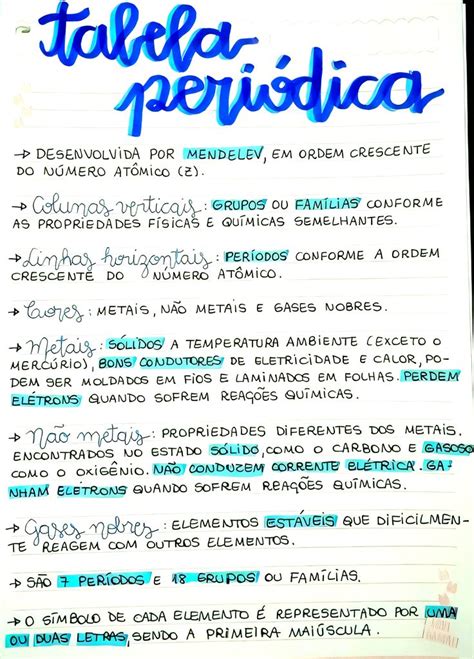 tabela
periódica
→ DESENVOLVIDA POR MENDELEV, EM ORDEM CRESCENTE
DO NÚMERO ATÔMICO (Z).
→ Colunas verticais: GRUPOS OU FAMÍLIAS CONFORME
AS PROPRIEDADES FÍSICAS E QUÍMICAS SEMELHANTES.
→ Linhas horizontais: PERÍODOS CONFORME A ORDEM
CRESCENTE DO NÚMERO ATÔMICO.
→ Cores: METAIS, NÃO METAIS E GASES NOBRES.
→ Metais: SÓLIDOS A TEMPERATURA AMBIENTE (EXCETO O
MERCÚRIO), BONS CONDUTORES DE ELETRICIDADE E CALOR, PO-
DEM SER MOLDADOS EM FIOS E LAMINADOS EM FOLHAS. PERDEM
ELÉTRONS QUANDO SOFREM REAÇÕES QUÍMICAS.
→ Não metais: PROPRIEDADES DIFERENTES DOS METAIS.
ENCONTRADOS NO ESTADO SÓLIDO, COMO O CARBONO E GASOSO
COMO O OXIGÊNIO. NÃO CONDUZEM CORRENTE ELÉTRICA. GA-
NHAM ELÉTRONS QUANDO SOFREM REAÇÕES QUÍMICAS.
→ Gases nobres: ELEMENTOS ESTÁVEIS QUE DIFICILMEN-
TE REAGEM COM OUTROS ELEMENTOS.
→ SÃO 7 PERÍODOS E 18 GRUPOS OU FAMÍLIAS.
→ O SÍMBOLO DE CADA ELEMENTO É REPRESENTADO POR UMA
OU DUAS LETRAS, SENDO A PRIMEIRA MAIÚSCULA.